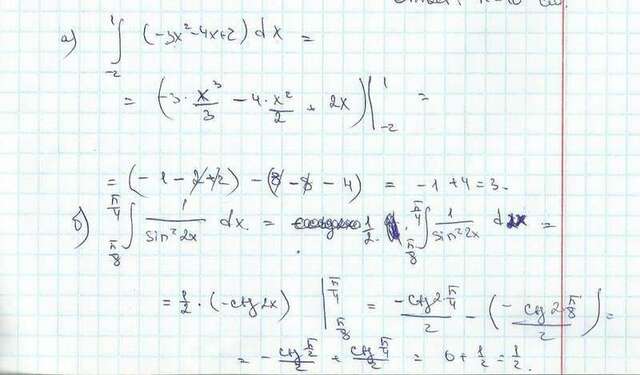 а) ∫₋₂¹ (-3x²-4x+2) dx =
= (-3·x³/3 - 4·x²/2 + 2x) |₋₂¹ =
= (-1-2+2) - (8-8-4) = -1+4=3.
б) ∫_{π/8}^{π/4} 1/sin²2x dx. = 1/2 · ∫_{π/8}^{π/4} 1/sin²2x d2x =
= 1/2 · (-ctg2x) |_{π/8}^{π/4} = -ctg2·π/4 / 2 - (-ctg2·π/8 / 2) =
= - ctg π/2 / 2 + ctg π/4 / 2 = 0 + 1/2 = 1/2.